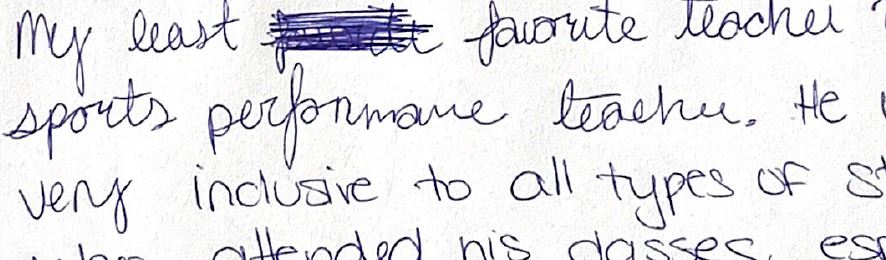 My least favorite teacher
sports performance teacher. He
very inclusive to all types of
attended his classes,